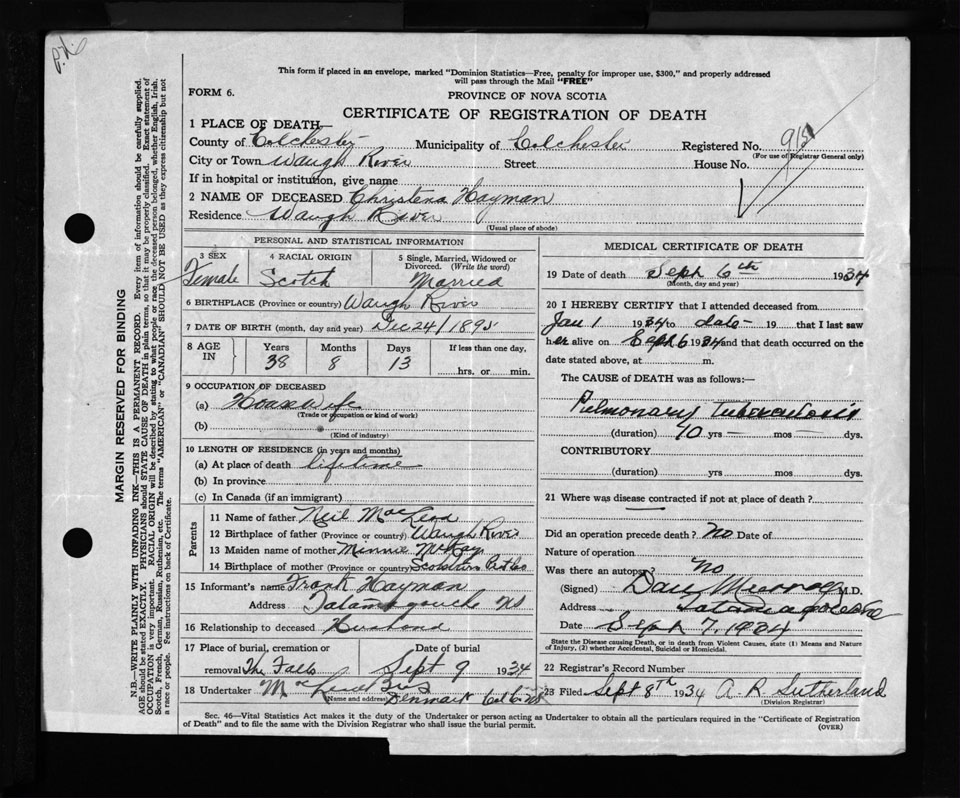 This form if placed in an envelope, marked "Dominion Statistics—Free, penalty for improper use, $300," and properly addressed
will pass through the Mail "FREE"
FORM 6.
PROVINCE OF NOVA SCOTIA
CERTIFICATE OF REGISTRATION OF DEATH
1 PLACE OF DEATH—
County of Colchester Municipality of Colchester Registered No.
(For use of Registrar General only)
City or Town Waugh River Street House No.
If in hospital or institution, give name
2 NAME OF DECEASED Christena Hayman
Residence Waugh River
(Usual place of abode)
PERSONAL AND STATISTICAL INFORMATION
3 SEX 4 RACIAL ORIGIN 5 Single, Married, Widowed or
Divorced. (Write the word)
Female Scotch Married
6 BIRTHPLACE (Province or country) Waugh River
7 DATE OF BIRTH (month, day and year) Dec 24/1895
8 AGE IN Years Months Days If less than one day,
38 8 13 hrs. or min.
9 OCCUPATION OF DECEASED
(a) Housewife
(Trade or occupation or kind of work)
(b)
(Kind of industry)
10 LENGTH OF RESIDENCE (in years and months)
(a) At place of death lifetime
(b) In province
(c) In Canada (if an immigrant)
Parents
11 Name of father Neil MacLeod
12 Birthplace of father (Province or country) Waugh River
13 Maiden name of mother Minnie McKay
14 Birthplace of mother (Province or country)
15 Informant's name Frank Hayman
Address Tatamagouche NS
16 Relationship to deceased Husband
17 Place of burial, cremation or Date of burial
removal The Falls Sept 9 1934
18 Undertaker Bros
(Name and address) Denmark Col Co NS
MEDICAL CERTIFICATE OF DEATH
19 Date of death Sept 6th 1934
(Month, day and year)
20 I HEREBY CERTIFY that I attended deceased from
Jan 1 1934 to date 19 that I last saw
her alive on Sept 6 1934 and that death occurred on the
date stated above, at m.
The CAUSE of DEATH was as follows:—
Pulmonary Tuberculosis
(duration) yrs — mos — dys.
CONTRIBUTORY
(duration) yrs mos dys.
21 Where was disease contracted if not at place of death?
Did an operation precede death? No Date of
Nature of operation
Was there an autopsy? No
(Signed) Dan Murray M.D.
Address Tatamagouche
Date Sept 7, 1934
State the Disease causing Death, or in death from Violent Causes, state (1) Means and Nature
of Injury, (2) whether Accidental, Suicidal or Homicidal.
22 Registrar's Record Number
23 Filed Sept 8th 1934 A. R. Sutherland
(Division Registrar)
Sec. 46—Vital Statistics Act makes it the duty of the Undertaker or person acting as Undertaker to obtain all the particulars required in the "Certificate of Registration
of Death" and to file the same with the Division Registrar who shall issue the burial permit.
(OVER)
MARGIN RESERVED FOR BINDING
N.B.—WRITE PLAINLY WITH UNFADING INK—THIS IS A PERMANENT RECORD. Every item of information should be carefully supplied.
AGE should be stated EXACTLY. PHYSICIANS should STATE CAUSE OF DEATH in plain terms, so that it may be properly classified. Exact statement of
OCCUPATION is very important. RACIAL ORIGIN will be described by stating to what people or race the deceased person belonged, whether English, Irish,
Scotch, French, German, Russian, Ruthenian, etc. The terms "AMERICAN" or "CANADIAN" SHOULD NOT BE USED as they express citizenship but not
a race or people. See instructions on back of Certificate.